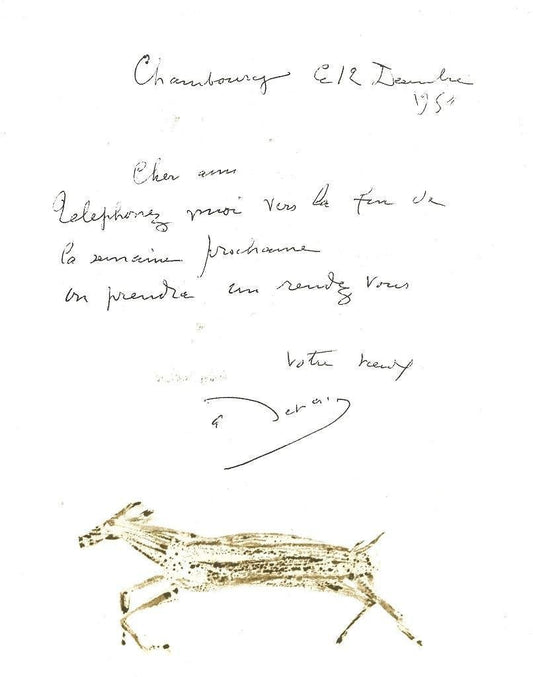 Chambourcy Le 12 Decembre
195
Cher ami
Telephonez moi vers la fin de
la semaine prochaine
on prendra un rendez vous
Votre vieux
a Derain